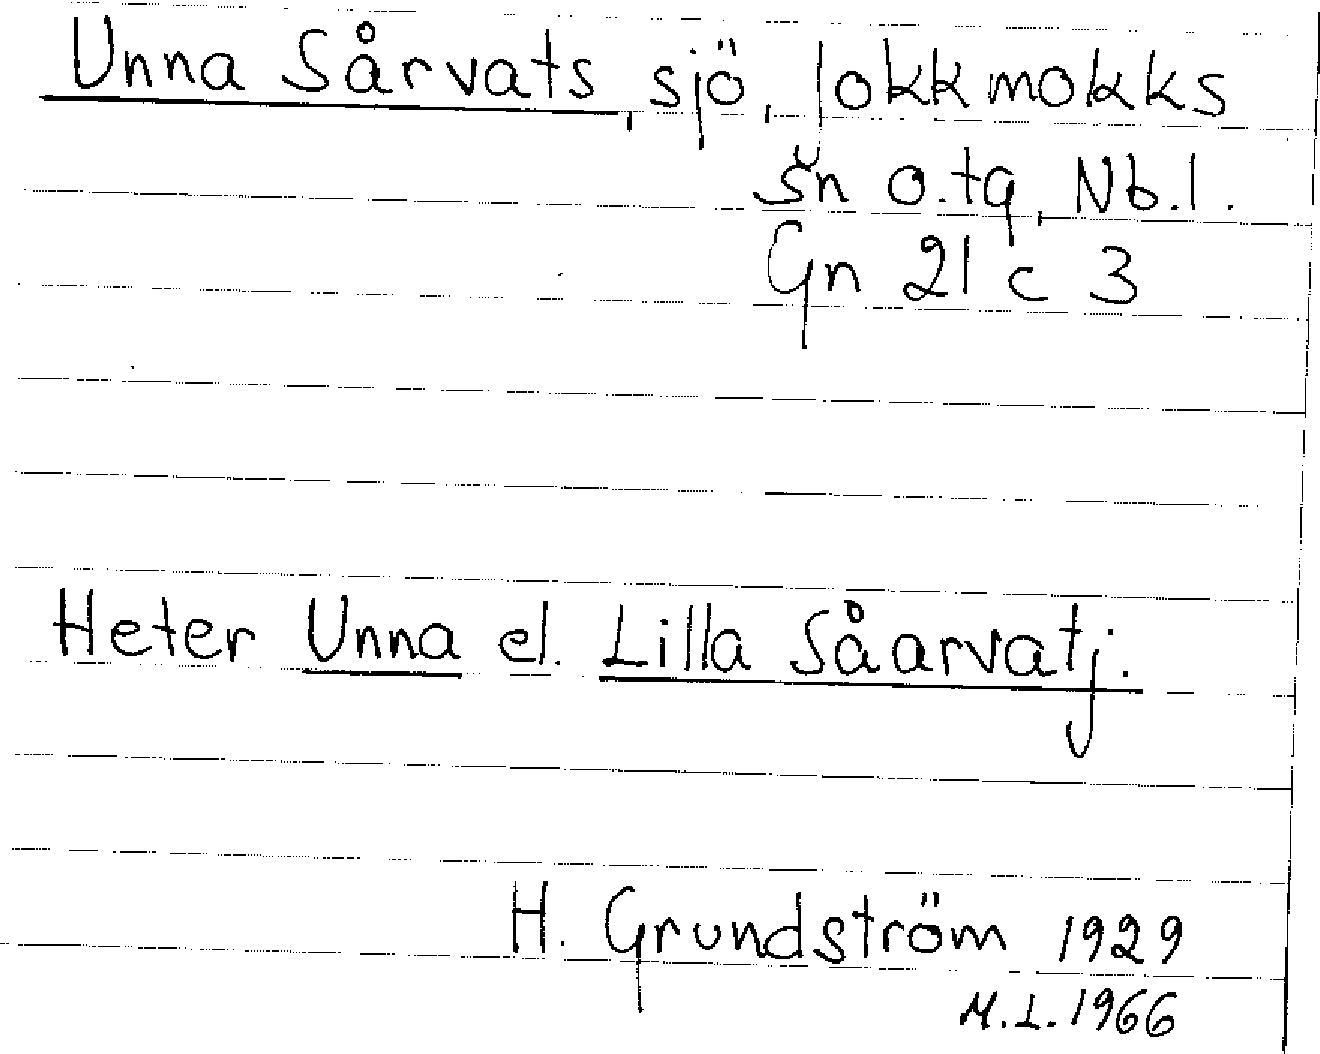 Unna Sårvats, sjö, Jokkmokks
sn o. tg, Nb.l.
Gn 21 c 3
Heter Unna el. Lilla Såarvatj.
H. Grundström 1929
M.L. 1966